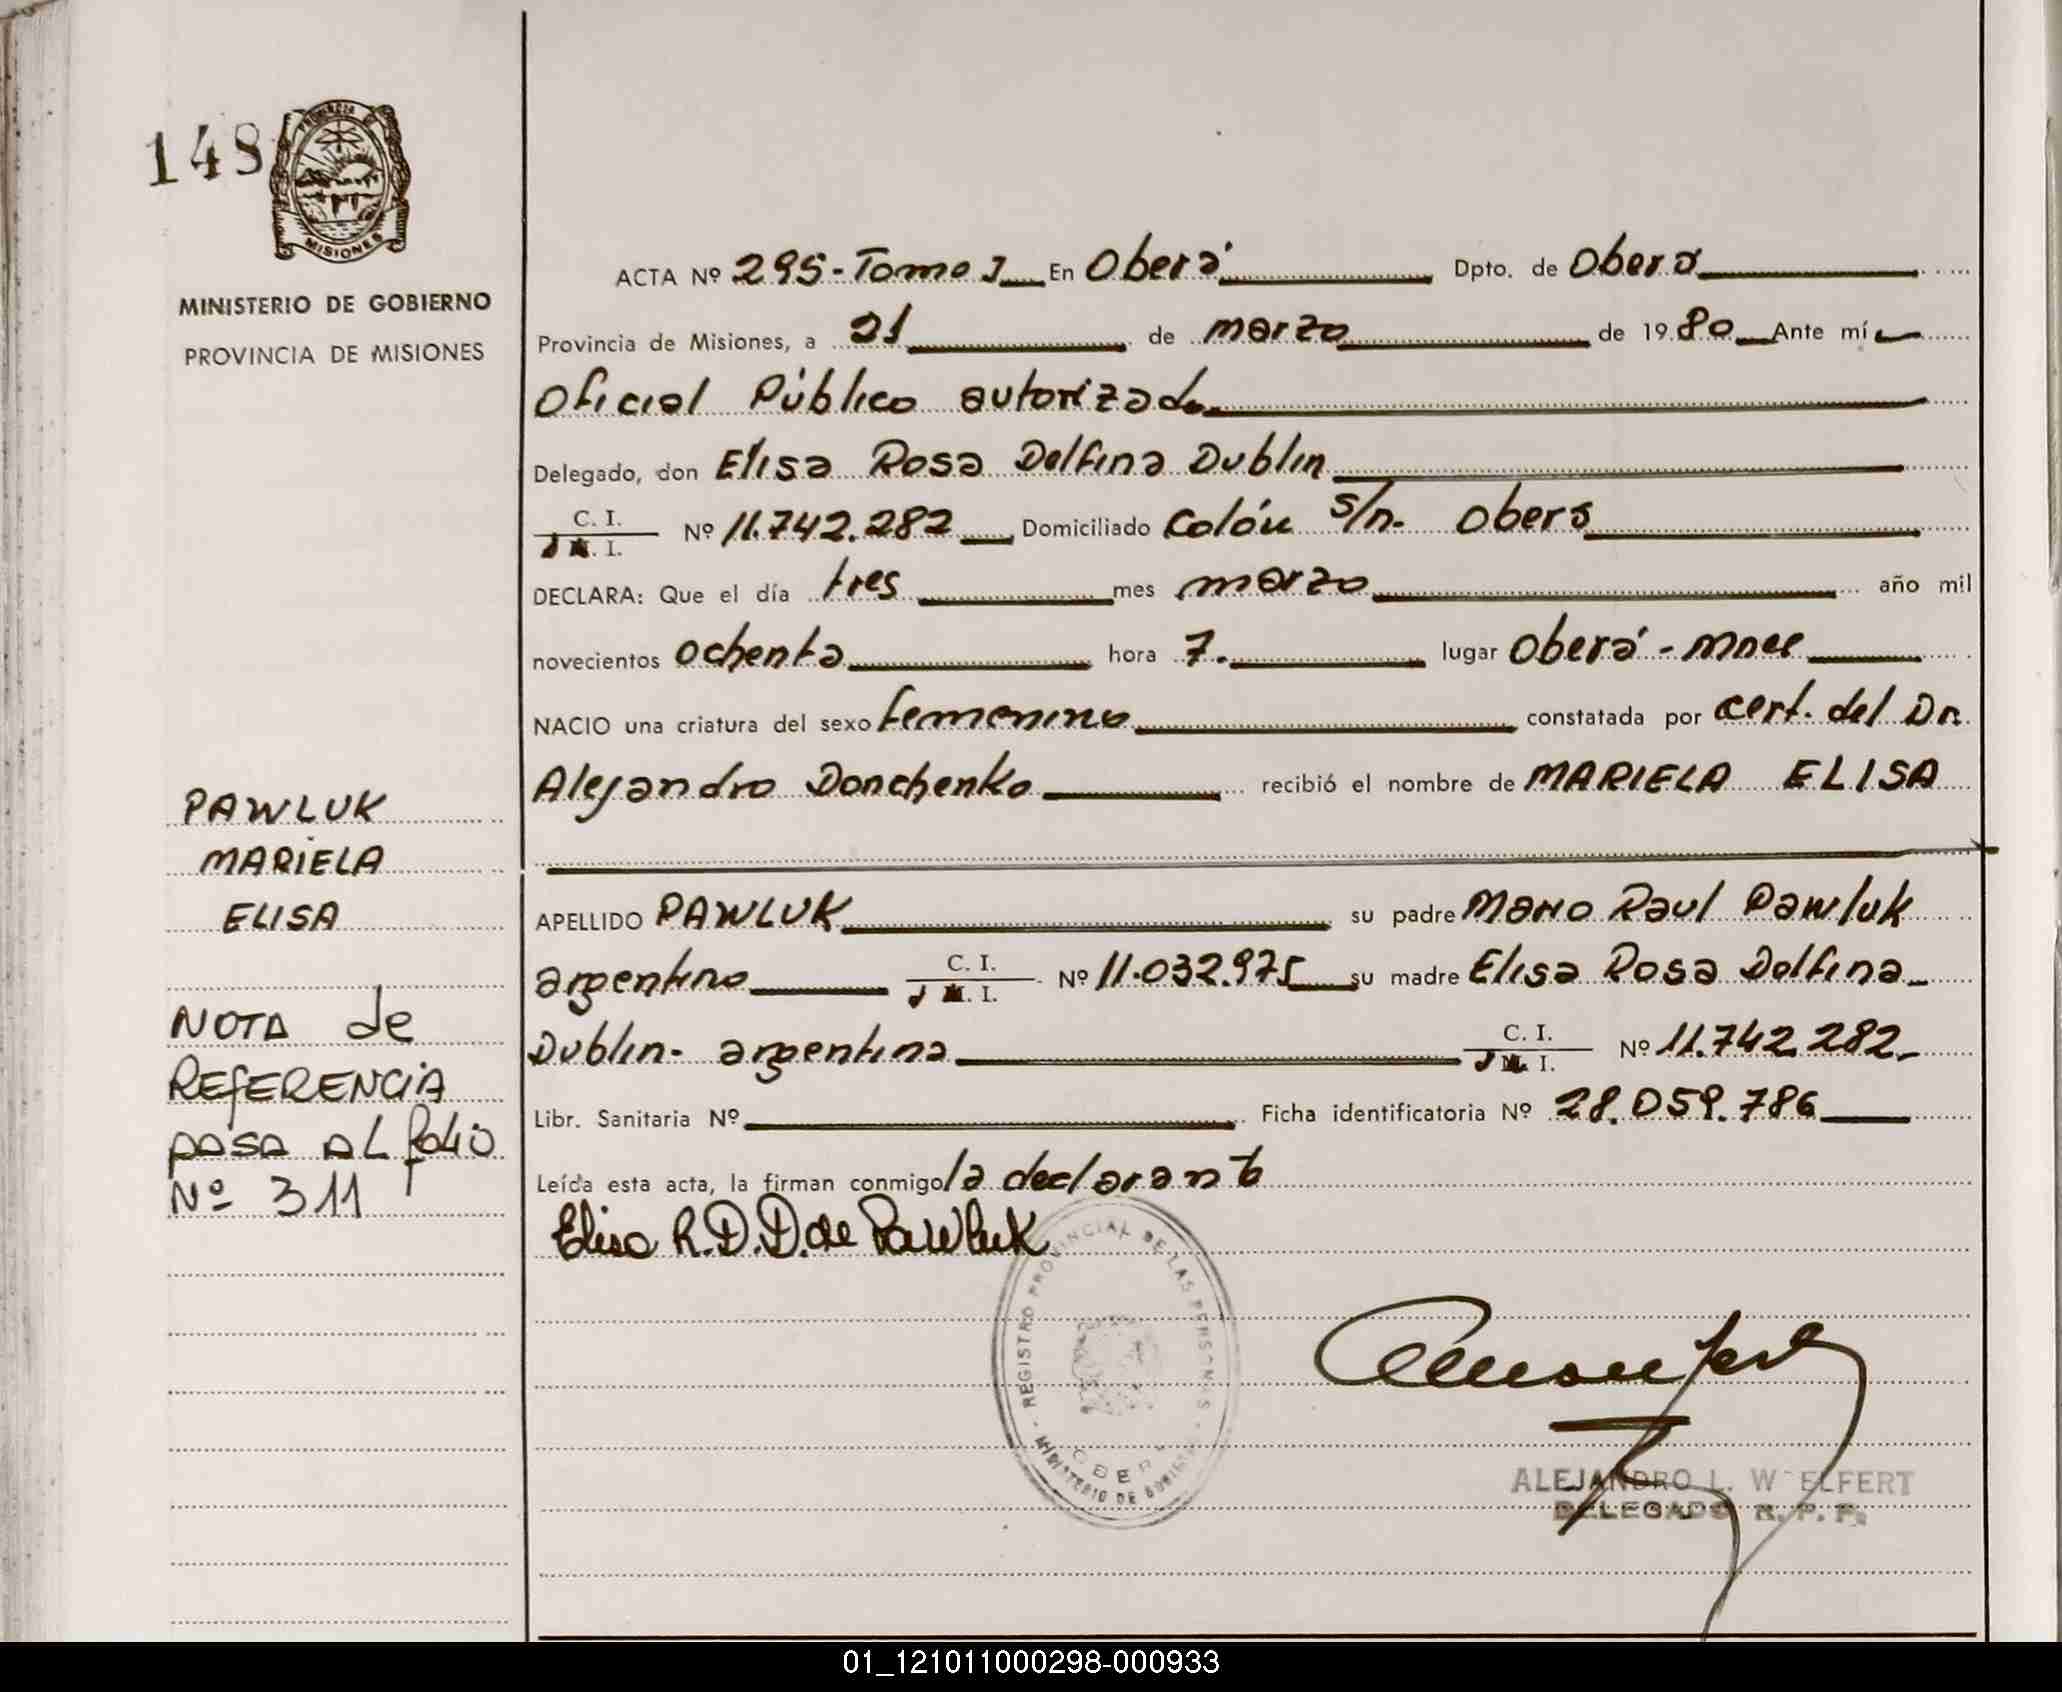 148
PROVINCIA DE
MISIONES
MINISTERIO DE GOBIERNO
PROVINCIA DE MISIONES
ACTA Nº 295-Tomo I En Oberá Dpto. de Oberá
Provincia de Misiones, a 21 de marzo de 1980 Ante mí
Oficial Público autorizado
Delegado, don Elisa Rosa Delfina Dublin
C. I. Nº 11.742.282 Domiciliado Colón s/n. Oberá
I.
DECLARA: Que el día tres mes marzo año mil
novecientos ochenta hora 7. lugar Oberá - Mnes
NACIO una criatura del sexo femenino constatada por cert. del Dr.
Alejandro Donchenko recibió el nombre de MARIELA ELISA
APELLIDO PAWLUK su padre Mario Raul Pawluk
argentino C. I. Nº 11.032.975 su madre Elisa Rosa Delfina
I.
Dublin- argentina C. I. Nº 11.742.282.-
I.
Libr. Sanitaria Nº Ficha identificatoria Nº 28.059.786
Leída esta acta, la firman conmigo la declarante
Elisa R.D.D. de Pawluk
PAWLUK
MARIELA
ELISA
NOTA de
REFERENCIA
pasa AL folio
Nº 311
REGISTRO PROVINCIAL DE LAS PERSONAS
OBERA
MINISTERIO DE GOBIERNO
ALEJANDRO L. W ELFERT
DELEGADO R. P. P.
01_121011000298-000933